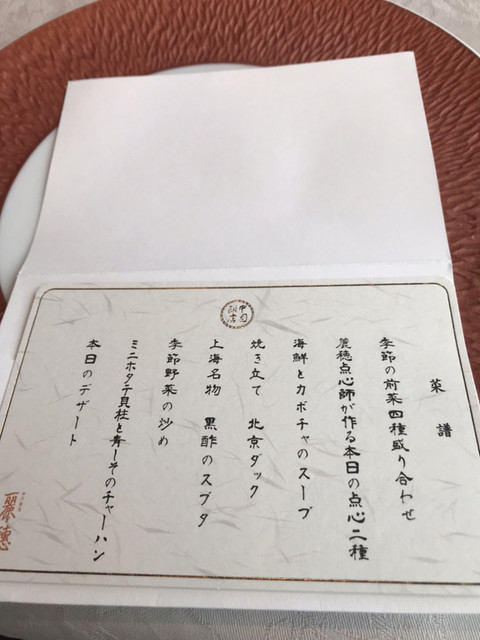 菜譜
季節の前菜四種盛り合わせ
麗穂点心師が作る本日の点心二種
海鮮とカボチャのスープ
焼き立て 北京ダック
上海名物 黒酢のスブタ
季節野菜の炒め
ミニホタテ貝柱と青しそのチャーハン
本日のデザート
麗穂